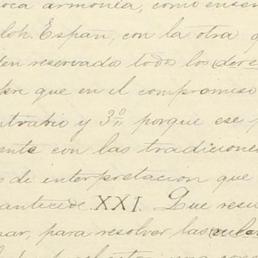 oca armonia, como enseñ
loh. Españ, con la otra q
en reservado todo los dere
ser que en el compromiso
ntrario y 3º porque ese p
ente con las tradicione
s de interpretacion que
antecede. XXI. Que resu
nar, para resolver las